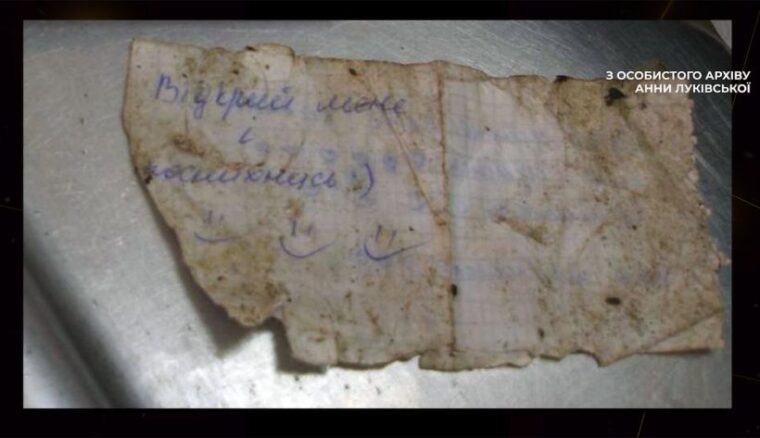 З ОСОБИСТОГО АРХІВУ
АННИ ЛУКІВСЬКОЇ
Відкрий мене
і
посміхнись :)